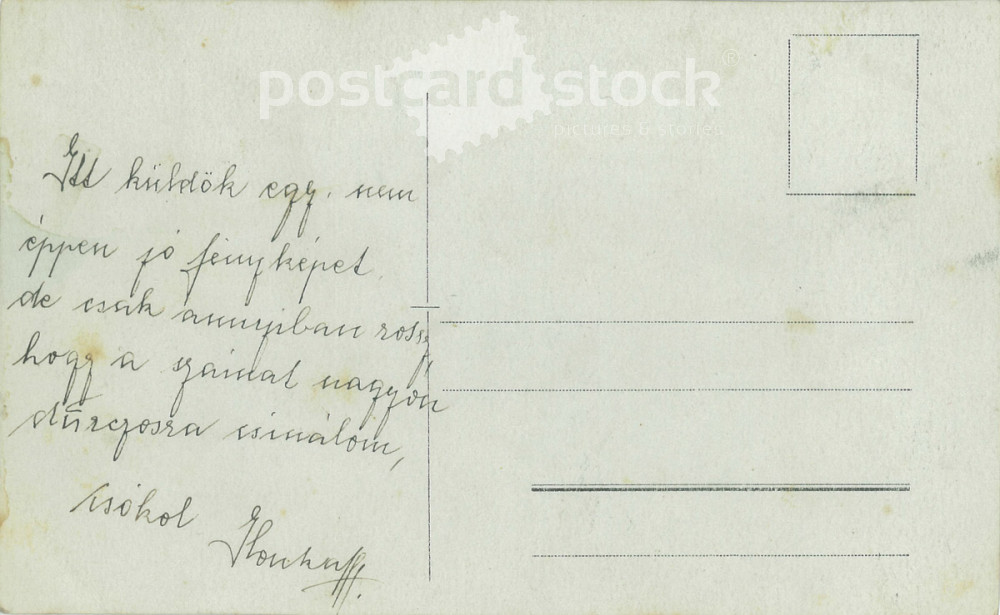 postcard stock
pictures & stories
Itt küldök egy. nem
éppen jó fényképet
de csak annyiban rossz,
hogy a számat nagyon
dűrczosra csinálom,
csókol